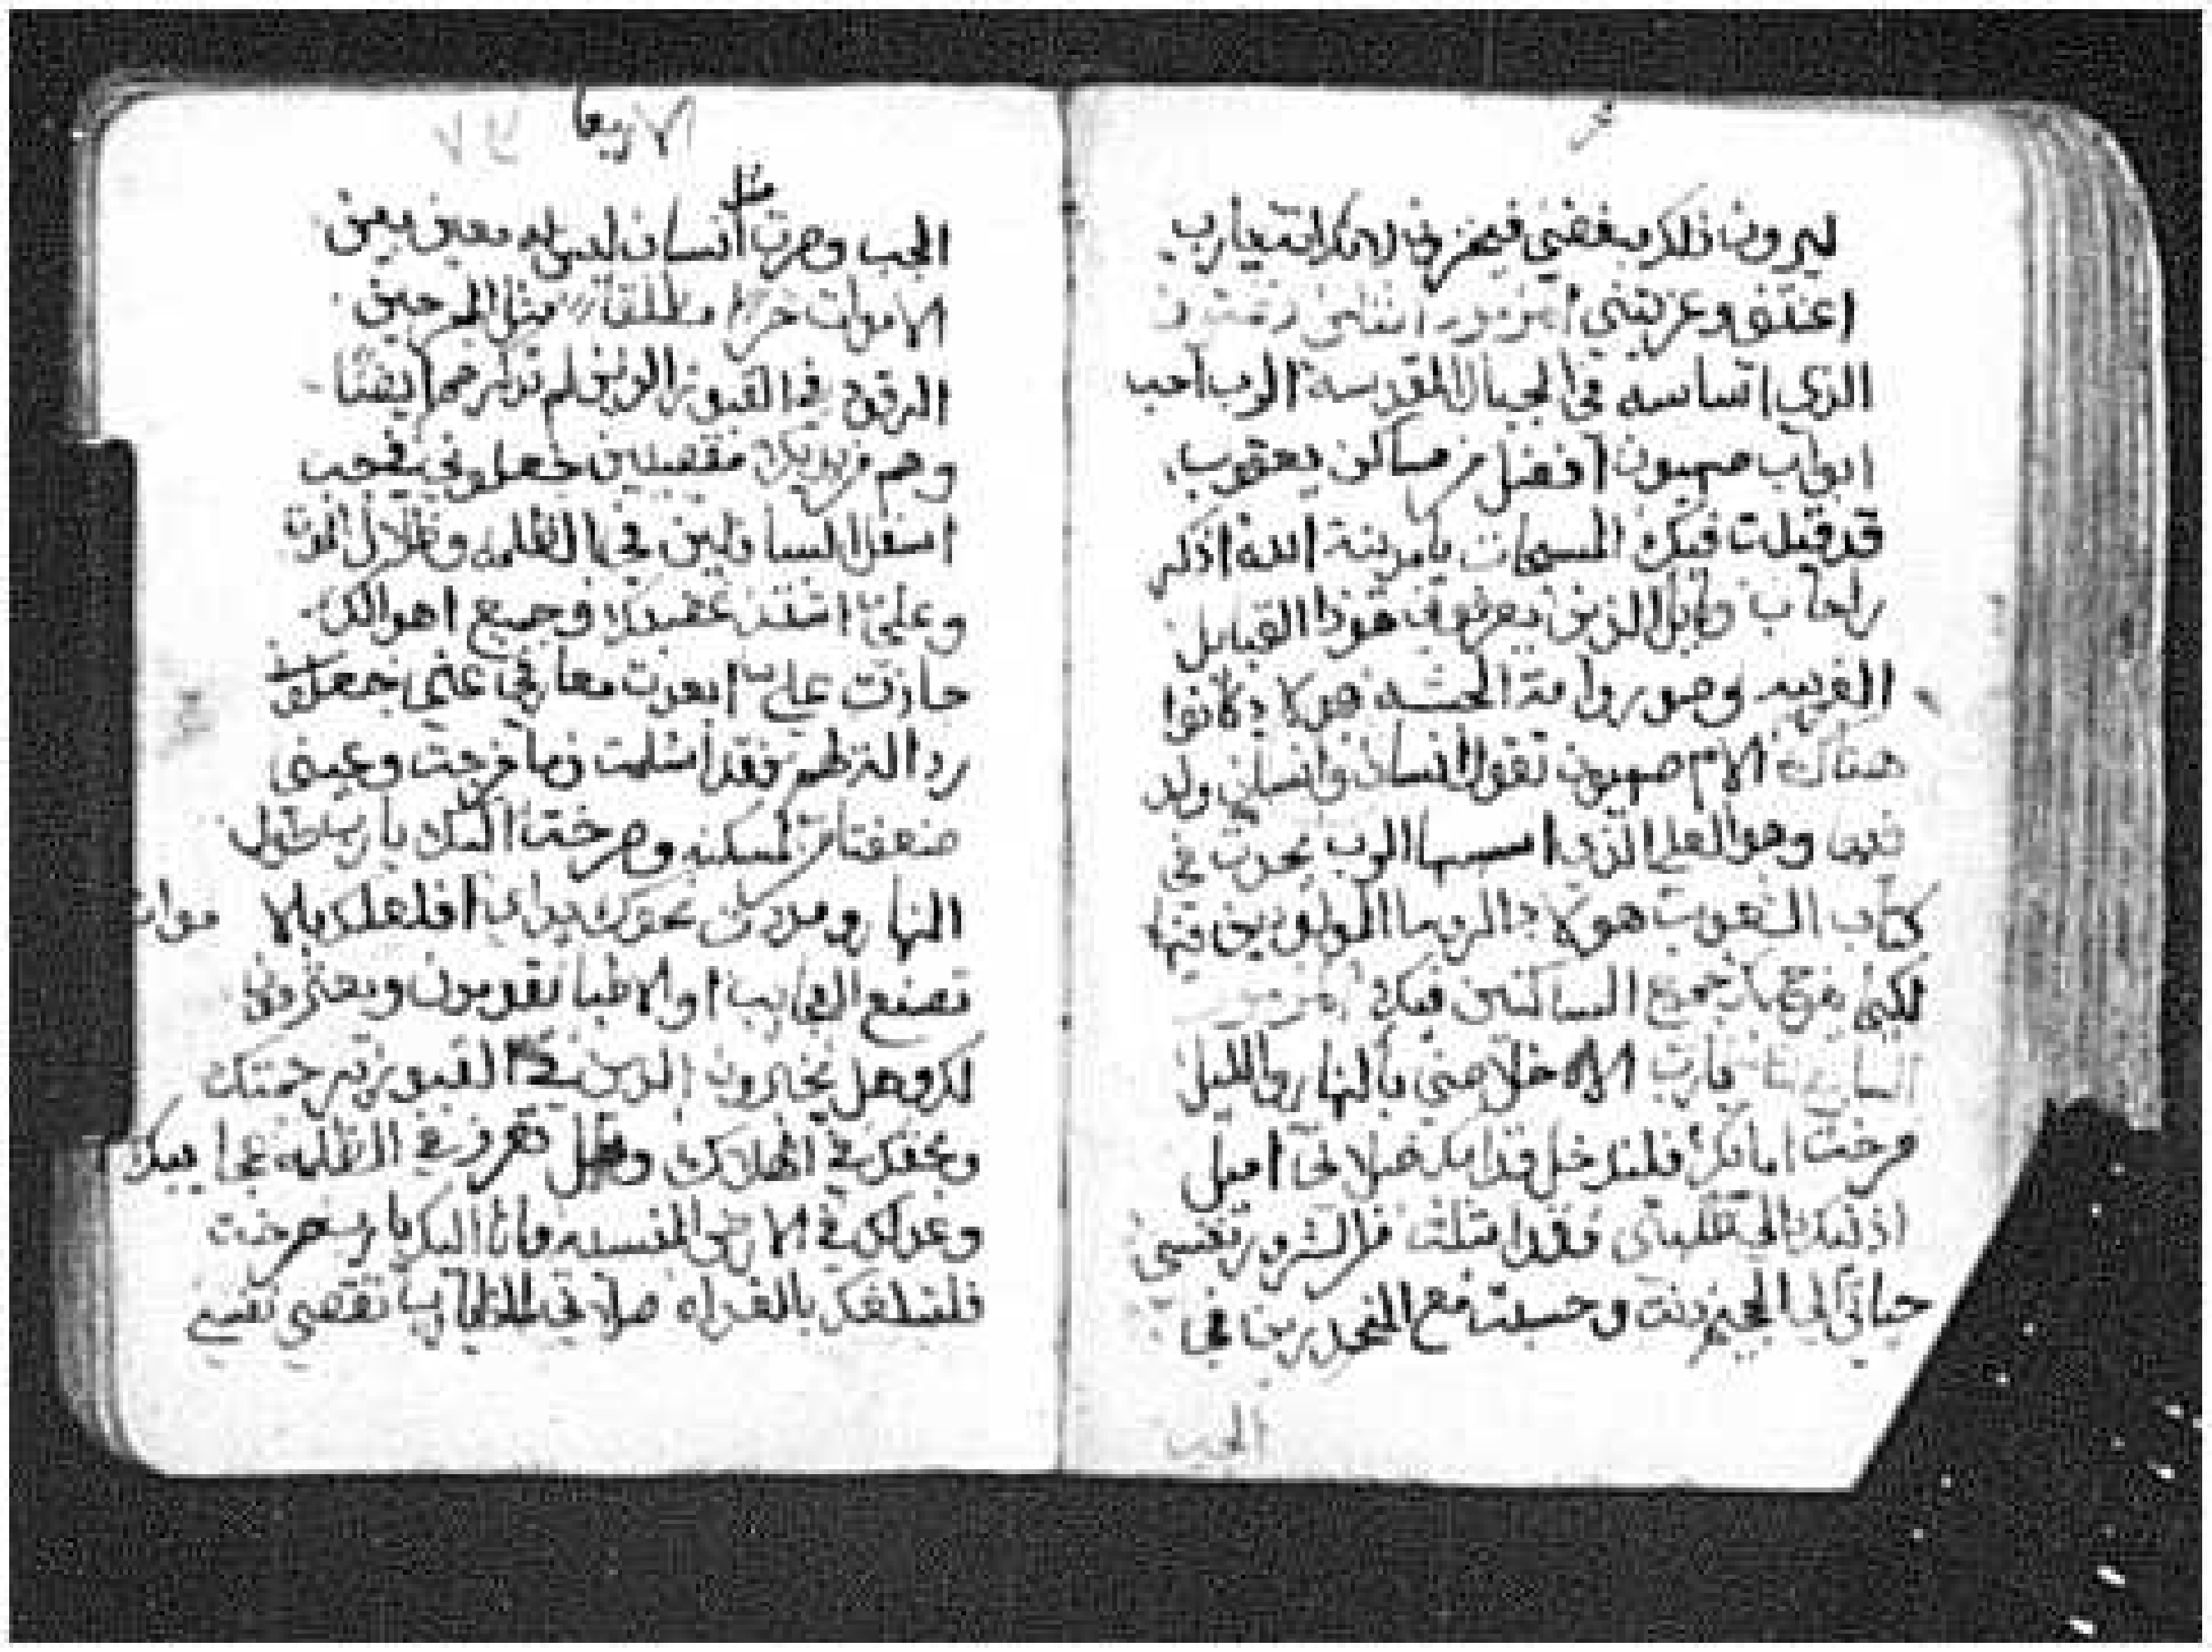 ليرون ذلك مبغضي فيخزون لانك انت يارب
اعنتني وعزيتني
الذي اساسه في الجبال المقدسة الرب احب
ابواب صهيون افضل من مساكن يعقوب
قد قيلت فيك المسبحات يا مدينة الله اذكر
راحاب وبابل الذين يعرفون هوذا القبايل
الغريبه وصور وامة الحبشه هولا كانوا
هناك الام صهيون تقول انسان وانسان ولد
فيها وهو العلي الذي اسسها الرب يحدث في
كتاب الشعوب هولا والروسا المولودين فيها
لكي يفرح جميع الساكنين فيك
يارب الاه خلاصي بالنهار والليل
صرخت امامك فلتدخل قدامك صلاتي امل
اذنيك الى طلبتي فقد امتلت من الشرور نفسي
حياتي الى الجحيم دنت وحسبت مع المنحدرين في
الجب
الاربعا
٧٣
مثل
الجب وصرت انسان ليس له معين بين
الاموات حرا مطلقا مثل المجرحين
الرقود في القبور الذين لم تذكرهم ايضا
وهم من يديك مقصيين جعلوني في جب
اسفل السافلين في الظلمه وظلال الموت
وعلي اشتد غضبك وجميع اهوالك
جازت علي ابعدت معارفي عني جعلوني
رذالة لهم فقد اسلمت وما خرجت وعيني
ضعفتا من المسكنه وصرخت اليك يارب طول
النهار ومددت نحوك يداي افلعلك بالاموات
تصنع العجايب او الاطبا يقومون ويعترفون
لك وهل يخبرون الذين في القبور برحمتك
وبحقك في الهلاك وهل تعرف في الظلمه عجايبك
وعدلك في الارض المنسيه وانا اليك يارب صرخت
فلتبلغك بالغداه صلاتي لماذا يارب تقصي نفسي